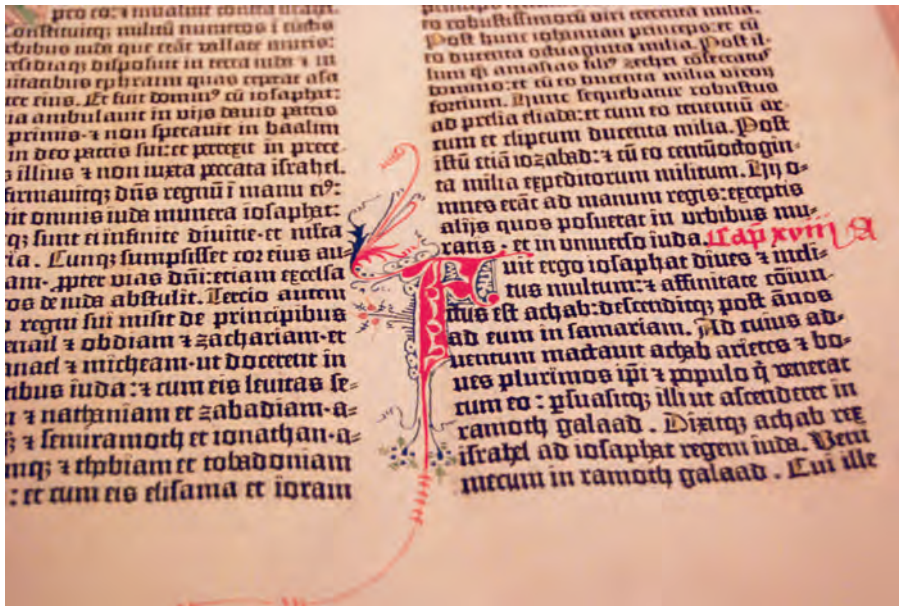 pro eo: ⁊ muniuit contra israhel.
Constituitq; militū numeros ī cūctis
urbibus iuda que erāt vallate muris:
presidiaq; disposuit in terra iuda ⁊ in
ciuitatibus ephraim quas ceperat asa
pater eius. Et fuit domin⁹ cū iosaphat:
quia ambulauit in vijs dauid patris
primis· ⁊ non sperauit in baalim
in deo patris sui: et perrexit in prece⸗
illius ⁊ non iuxta peccata israhel.
firmauitq; dn̄s regnū ī manu ei⁹:
omnis iuda munera iosaphat:
q; sunt ei infinite diuitie· et multa
ia. Cunq; sumpsisset cor eius au⸗
am· ꝓpter vias dn̄i: etiam excelsa
os de iuda abstulit. Tercio autem
regni sui misit de principibus
⁊ obdiam ⁊ zachariam· et
anael ⁊ micheam· ut docerent in
ibus iuda: ⁊ cum eis leuitas se⸗
⁊ nathaniam et zabadiam· a⸗
⁊ semiramoth et ionathan· a⸗
q; ⁊ thobiam et tobadoniam
: et cum eis elisama et ioram
principes
et robustissimorū viri trecenta milia.
Post hunc iohannan princeps: et cū
eo ducenta octuaginta milia. Post il⸗
lum q̄ȝ amasias fili⁹ zechri cōsecrat⁹
domino: et cū eo ducenta milia viroȝ
fortium. Hunc sequebatur robustus
ad prelia eliada: et cum eo tenentiū ar⸗
cum et clipeum ducenta milia. Post
istū etiā iozabad: ⁊ cū eo centūoctogin⸗
ta milia expeditorum militum. Hij o⸗
mnes erāt ad manum regis: exceptis
alijs quos posuerat in urbibus mu⸗
ratis· et in vniuerso iuda. Cap̄ xviij A
Fuit ergo iosaphat diues ⁊ incli⸗
tus multum: ⁊ affinitate cōiun⸗
ctus est achab: descenditq; post ānos
ad eum in samariam. Ad cuius ad⸗
uentum mactauit achab arietes ⁊ bo⸗
ues plurimos ip̄i ⁊ populo q̄ venerat
cum eo: ꝑsuasitq; illi ut ascenderet in
ramoth galaad. Dixitq; achab rex
israhel ad iosaphat regem iuda. Veni
mecum in ramoth galaad. Cui ille